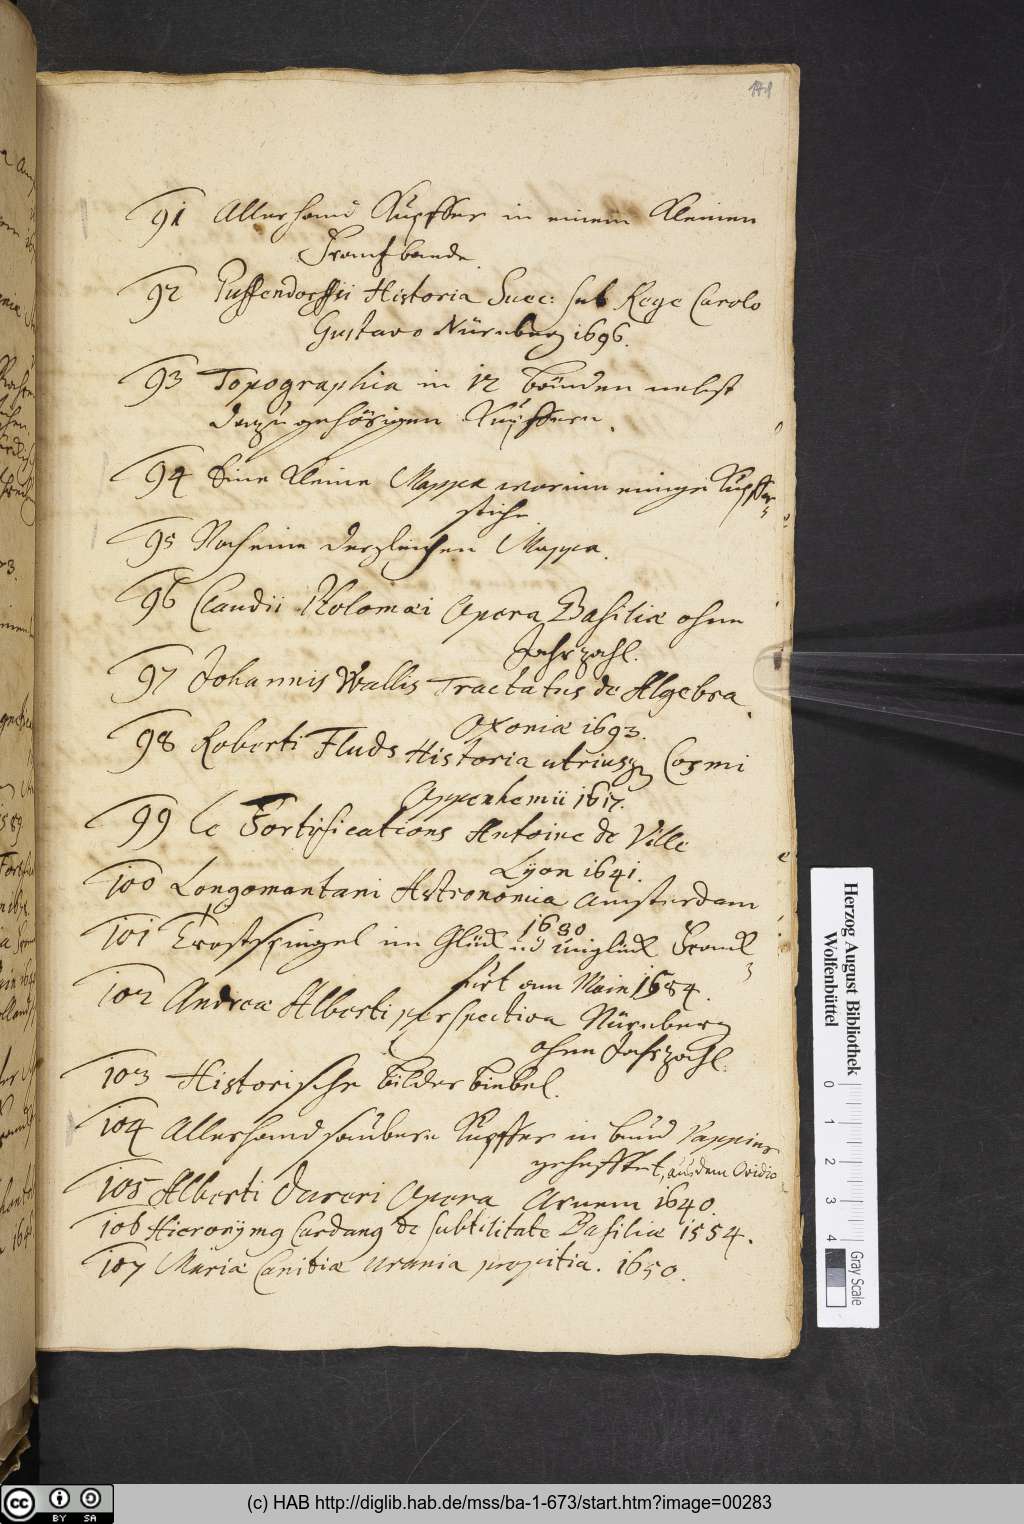 141
91 Allerhand Kupffer in einem kleinen
Frantzbande.
92 Puffendorffii Historia Suec: sub Rege Carolo
Gustavo Nürnberg 1696.
93 Topographia in 12 bänden nebst
dazu gehörigen Kupffern.
94 Eine kleine Mappa worinn einige Kupffer=
stiche
95 Noch eine dergleichen Mappa.
96 Claudii Ptolomæi Opera Basiliæ ohne
Jahrzahl.
97 Johannis Wallis Tractatus de Algebra
Oxoniæ 1693.
98 Roberti Fluds Historia utriusq Cosmi
Oppenhemii 1617.
99 Le Fortifications Antoine de Ville
Lyon 1641.
100 Longomontani Astronomia Amsterdam
1630
101 Trostspiegel im Glück ud unglück Franck=
furt am Main 1584.
102 Andreæ Alberti perspectiva Nürnberg
ohne Jahrzahl.
103 Historische bilder biebel.
104 Allerhand saubere Kupffer in bund Pappier
gehefftet, aus dem Ovidio
105 Alberti Dureri Opera Arnem 1640.
106 Hieronymq Cardanq de subtilitate Basiliæ 1554.
107 Mariæ Cunitiæ Urania propitia. 1650.
Herzog August Bibliothek
Wolfenbüttel
0 1 2 3 4
Gray Scale
cc BY SA
(c) HAB http://diglib.hab.de/mss/ba-1-673/start.htm?image=00283